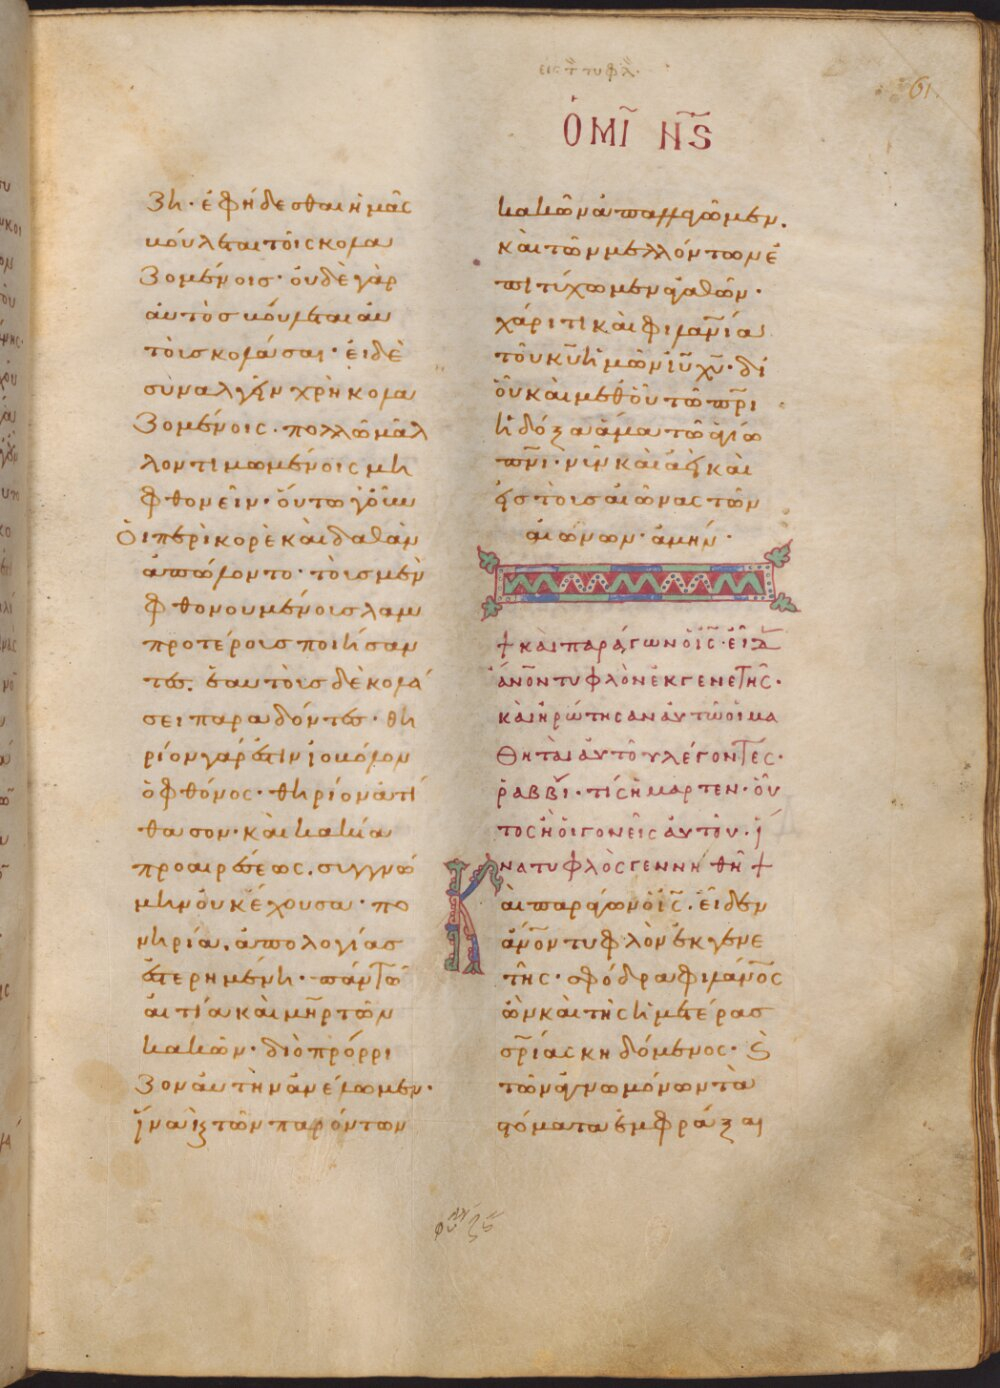 61
ὉΜΙ͂ ΝϚ
ζη· ἐφήδεσθαι ἡμᾶς
κούλεται τοῖς κολα
ζομένοις· οὐδὲ γὰρ
αὐτὸς βούλεται αὐ
τοὺς κολάσαι· εἰ δὲ
συναλγεῖν χρὴ κολα
ζομένοις· πολλῶ μᾶλ
λον τιμωμένοις μὴ
φθονεῖν· οὕτω γοῦν
οἱ περὶ κορὲ καὶ δαθὰν
ἀπώλοντο· τοὺς μὲν
φθονουμένους λαμ
προτέρους ποιήσαν
τες. ἑαυτοὺς δὲ κολά
σει παραδόντες· θη
ρίον γάρ ἐστιν ἰοβόλον
ὁ φθόνος· θηρίον ἀτί
θασον· καὶ κακία
προαιρέσεως. συγγνώ
μην οὐκ ἔχουσα· πο
νηρία. ἀπολογίας
ἐστερημένη· πάντω
αἰτία καὶ μη̅ρ τῶν
κακῶν· διὸ πρόρρι
ζον αὐτὴν ἀνέλωμεν·
ἵνα ἐκ τῶν παρόντων
κακῶν ἀπαλλαγῶμεν.
καὶ τῶν μελλόντων ἐ
πιτύχωμεν ἀγαθῶν·
χάριτι καὶ φιλαν̅ία
τοῦ κυ̅ ἡμῶν ιυ̅ χυ̅· δι
οὗ καὶ μεθ' οὗ τῶ πρι̅
ἡ δόξα ἅμα τῶ ἁγίω
πνι̅· νῦν καὶ ἀεὶ καὶ
εἰς τοὺς αἰῶνας τῶν
αἰώνων· ἀμήν·
+ καὶ παράγων ὁ ις̅· εἶδ
ἀν̅ον τυφλὸν ἐκ γενετῆς·
καὶ ἠρώτησαν αὐτὸν οἱ μα
θηταὶ αὐτοῦ λέγοντες·
ῥαββὶ· τίς ἥμαρτεν· οὗ
τος ἢ οἱ γονεῖς αὐτοῦ· ἵ
να τυφλὸς γεννηθῆ +
Καὶ παράγων ὁ ις̅. εἶδεν
ἀν̅ον τυφλὸν ἐκ γενε
τῆς· σφόδρα φιλάν̅ος
ὢν καὶ τῆς ἡμετέρας
σρ̅ίας κηδόμενος· καὶ
τῶν ἀγνωμόνων τὰ
στόματα ἐμφράξαι